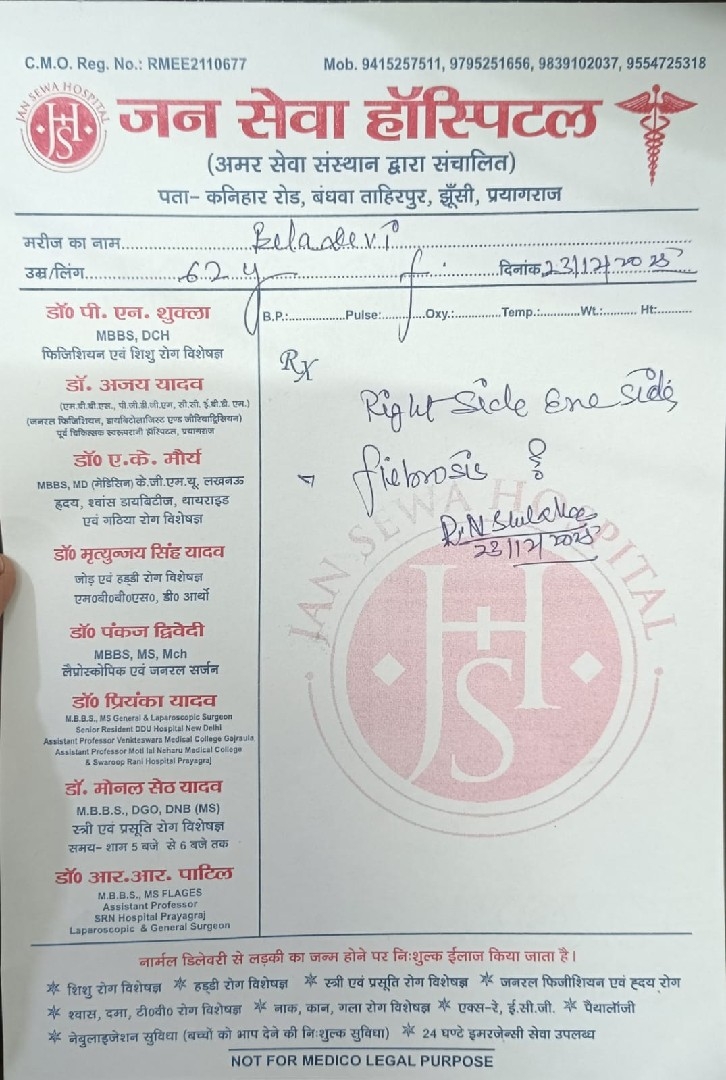 C.M.O. Reg. No.: RMEE2110677 Mob. 9415257511, 9795251656, 9839102037, 9554725318
JAN SEWA HOSPITAL
जन सेवा हॉस्पिटल
(अमर सेवा संस्थान द्वारा संचालित)
पता- कनिहार रोड, बंधवा ताहिरपुर, झूँसी, प्रयागराज
मरीज का नाम Beladevi
उम्र/लिंग 62 y f दिनांक 23/12/2025
B.P.: Pulse: Oxy.: Temp.: Wt.: Ht:
Rx
Right side One side
fiebrosis
P.N Shukla
23/12/2025
डॉ० पी. एन. शुक्ला
MBBS, DCH
फिजिशियन एवं शिशु रोग विशेषज्ञ
डॉ. अजय यादव
(एम.बी.बी.एस., पी.जी.डी.जी.एम, सी.सी. ई.बी.डी. एम.)
(जनरल फिजिशियन, डायबिटोलाजिस्ट एण्ड जीरियाट्रिसियन)
पूर्व चिकित्सक स्वरूपरानी हॉस्पिटल, प्रयागराज
डॉ० ए.के. मौर्य
MBBS, MD (मेडिसिन) के.जी.एम.यू. लखनऊ
हृदय, श्वांस डायबिटीज, थायराइड
एवं गठिया रोग विशेषज्ञ
डॉ० मृत्युन्जय सिंह यादव
जोड़ एवं हड्डी रोग विशेषज्ञ
एम०बी०बी०एस०, डी० आर्थो
डॉ० पंकज द्विवेदी
MBBS, MS, Mch
लैप्रोस्कोपिक एवं जनरल सर्जन
डॉ० प्रियंका यादव
M.B.B.S., MS General & Laparoscopic Surgeon
Senior Resident DDU Hospital New Delhi
Assistant Professor Venkteswara Medical College Gajraula
Assistant Professor Moti lal Neharu Medical College
& Swaroop Rani Hospital Prayagraj
डॉ. मोनल सेठ यादव
M.B.B.S., DGO, DNB (MS)
स्त्री एवं प्रसूति रोग विशेषज्ञ
समय- शाम 5 बजे से 6 बजे तक
डॉ० आर.आर. पाटिल
M.B.B.S., MS FLAGES
Assistant Professor
SRN Hospital Prayagraj
Laparoscopic & General Surgeon
JAN SEWA HOSPITAL
नार्मल डिलेवरी से लड़की का जन्म होने पर निःशुल्क ईलाज किया जाता है।
शिशु रोग विशेषज्ञ हड्डी रोग विशेषज्ञ स्त्री एवं प्रसूति रोग विशेषज्ञ जनरल फिजीशियन एवं हृदय रोग
श्वास, दमा, टी०वी० रोग विशेषज्ञ नाक, कान, गला रोग विशेषज्ञ एक्स-रे, ई.सी.जी. पैथालॉजी
नेबुलाइजेशन सुविधा (बच्चों को भाप देने की निःशुल्क सुविधा) 24 घण्टे इमरजेन्सी सेवा उपलब्ध
NOT FOR MEDICO LEGAL PURPOSE